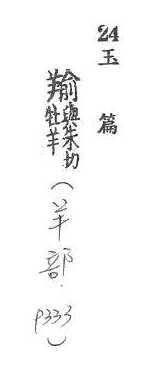 24 玉篇
羭與朱切牡羊(羊部.p333)